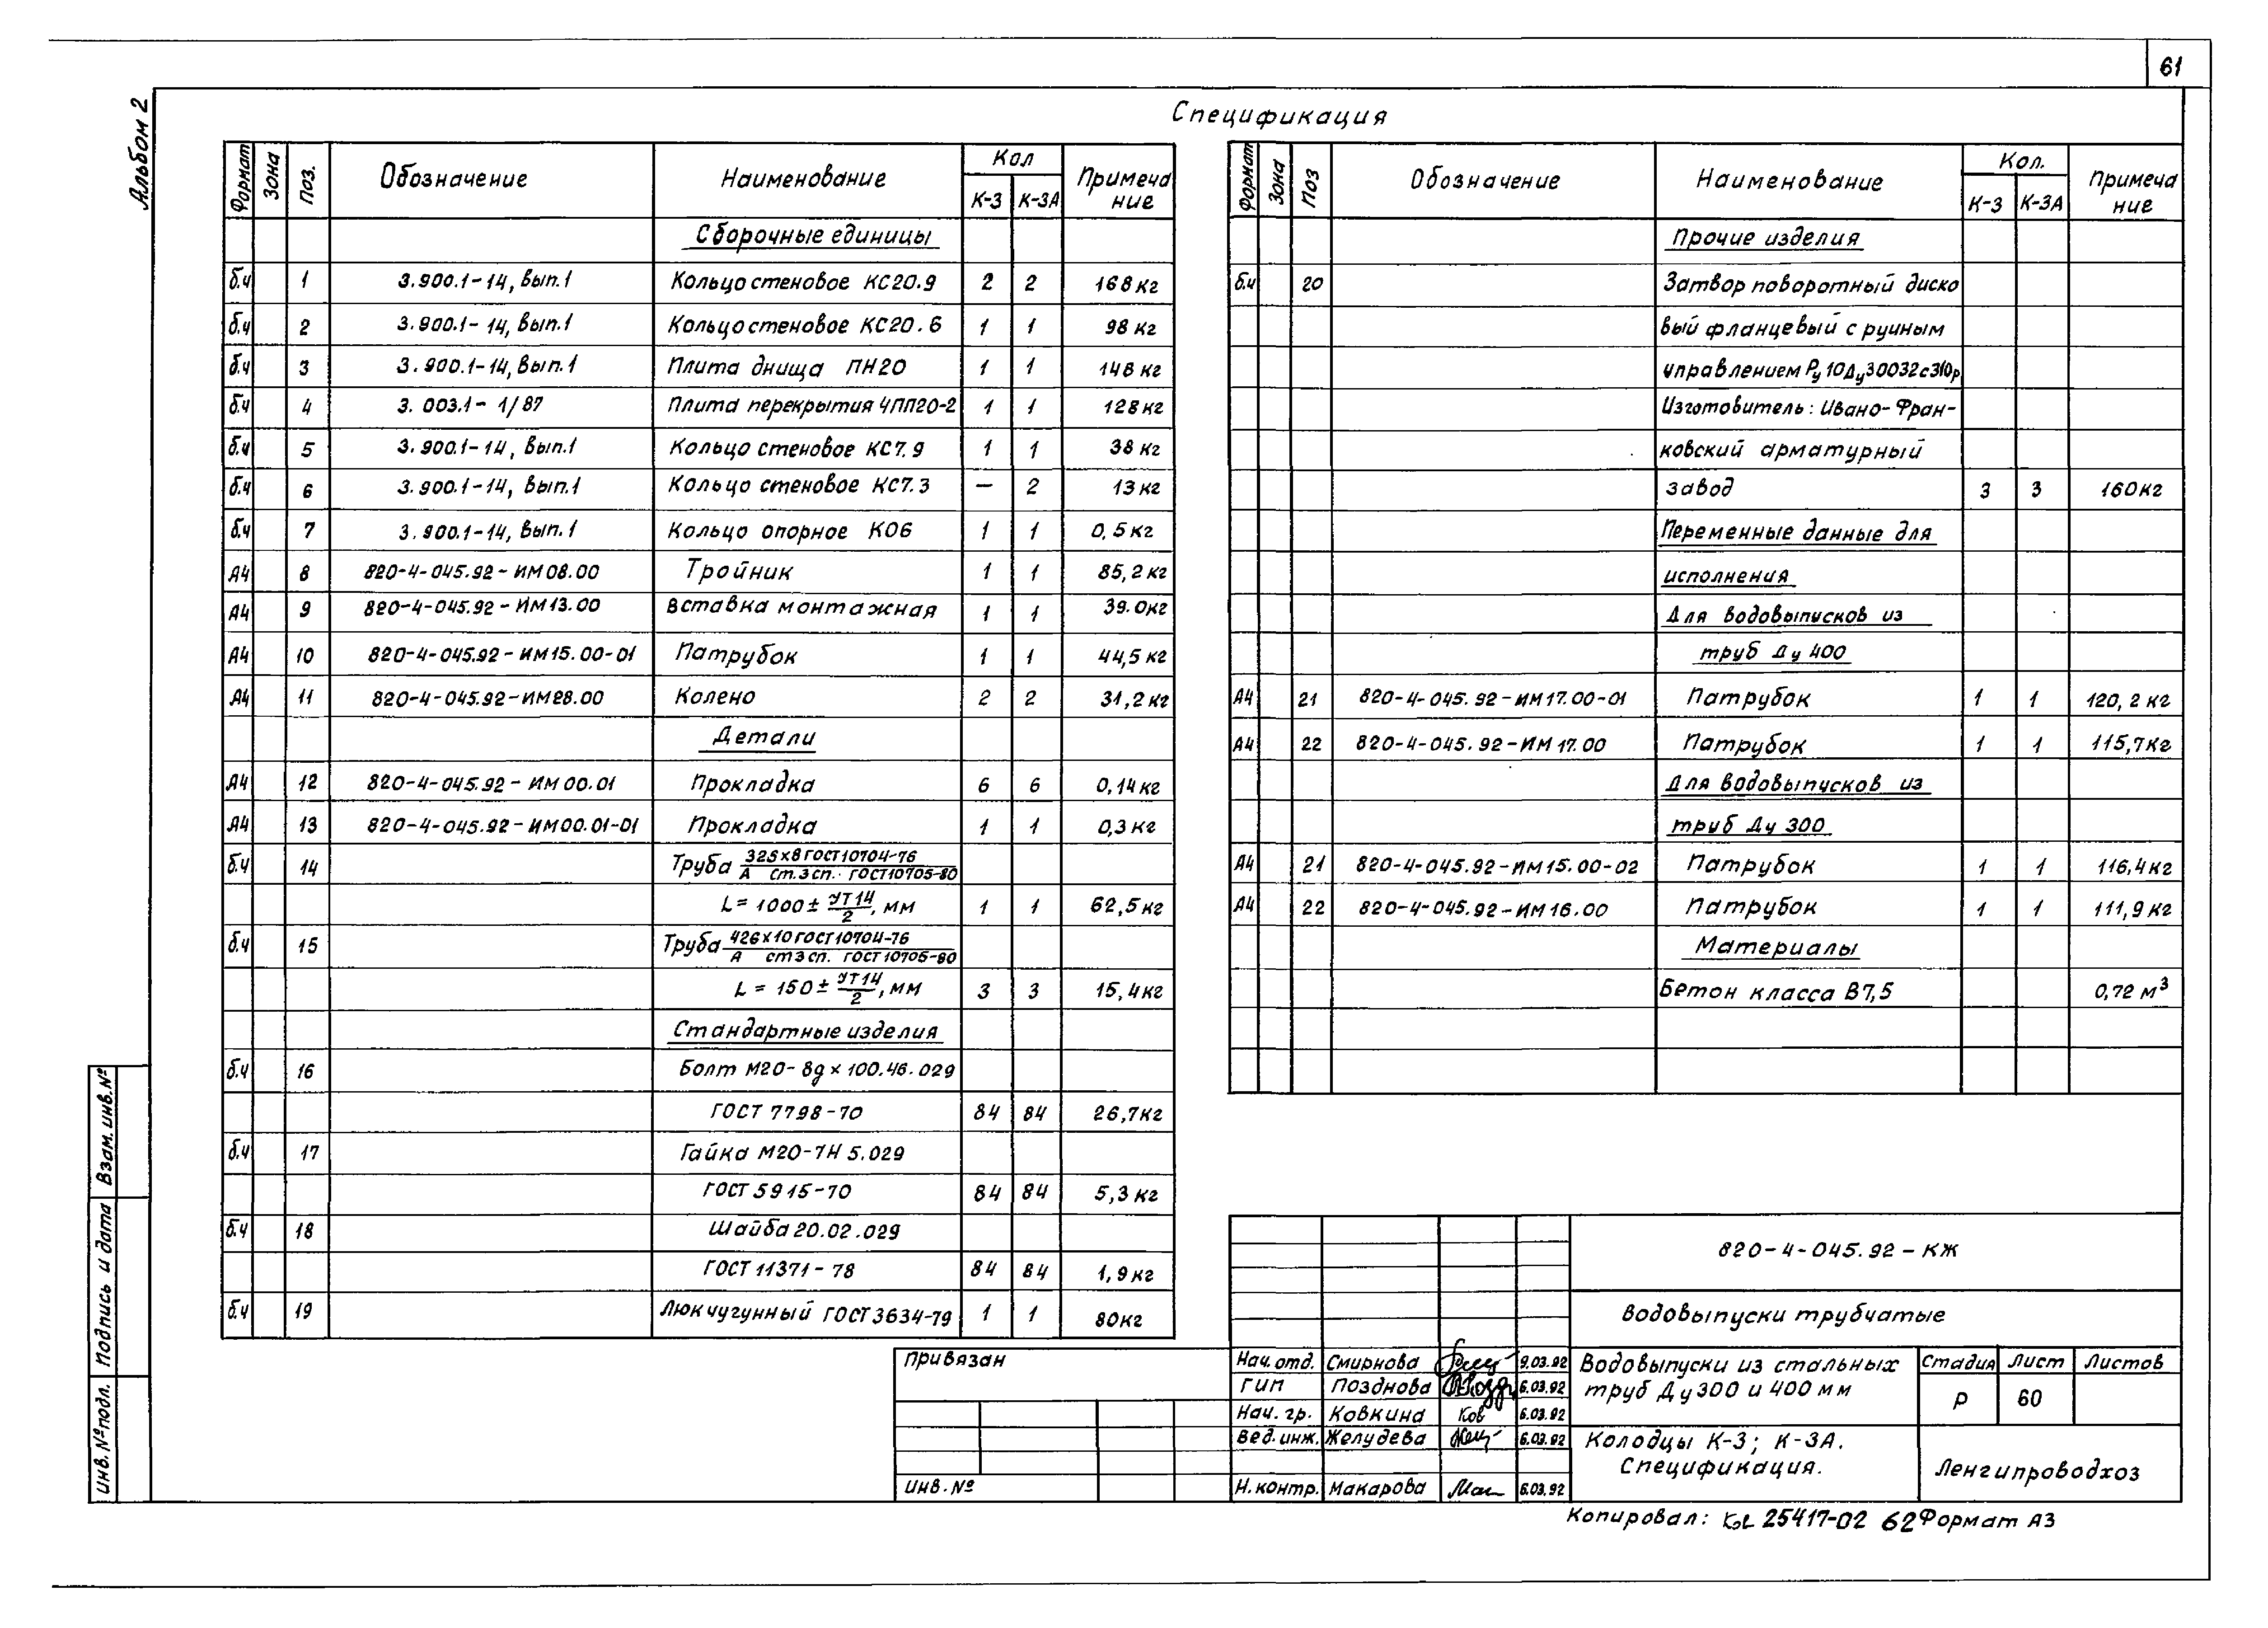 61
Альбом 2
Спецификация
Формат Зона Поз. Обозначение Наименование Кол Примеча
К-3 К-3А ние
Сборочные единицы
б.ч 1 3.900.1-14, вып.1 Кольцо стеновое КС20.9 2 2 168 кг
б.ч 2 3.900.1-14, вып.1 Кольцо стеновое КС20.6 1 1 98 кг
б.ч 3 3.900.1-14, вып.1 Плита днища ПН20 1 1 148 кг
б.ч 4 3.003.1-1/87 Плита перекрытия 4ПП20-2 1 1 128 кг
б.ч 5 3.900.1-14, вып.1 Кольцо стеновое КС7.9 1 1 38 кг
б.ч 6 3.900.1-14, вып.1 Кольцо стеновое КС7.3 — 2 13 кг
б.ч 7 3.900.1-14, вып.1 Кольцо опорное КО6 1 1 0,5 кг
А4 8 820-4-045.92-ИМ08.00 Тройник 1 1 85,2 кг
А4 9 820-4-045.92-ИМ13.00 Вставка монтажная 1 1 39.0 кг
А4 10 820-4-045.92-ИМ15.00-01 Патрубок 1 1 44,5 кг
А4 11 820-4-045.92-ИМ28.00 Колено 2 2 31,2 кг
Детали
А4 12 820-4-045.92-ИМ00.01 Прокладка 6 6 0,14 кг
А4 13 820-4-045.92-ИМ00.01-01 Прокладка 1 1 0,3 кг
б.ч 14 Труба 325х8 ГОСТ10704-76
А Ст.3сп. ГОСТ10705-80
L=1000± УТ14/2, мм 1 1 62,5 кг
б.ч 15 Труба 426х10 ГОСТ10704-76
А ст3сп. ГОСТ10705-80
L=150± УТ14/2, мм 3 3 15,4 кг
Стандартные изделия
б.ч 16 Болт М20-8g×100.46.029
ГОСТ 7798-70 84 84 26,7 кг
б.ч 17 Гайка М20-7Н 5.029
ГОСТ 5915-70 84 84 5,3 кг
б.ч 18 Шайба 20.02.029
ГОСТ 11371-78 84 84 1,9 кг
б.ч 19 Люк чугунный ГОСТ 3634-79 1 1 80 кг
Формат Зона Поз Обозначение Наименование Кол. Примеча
К-3 К-3А ние
Прочие изделия
б.ч 20 Затвор поворотный диско
вый фланцевый с ручным
управлением Ру10Ду30032с310р
Изготовитель: Ивано-Фран-
ковский арматурный
завод 3 3 160 кг
Переменные данные для
исполнения
Для водовыпусков из
труб Ду 400
А4 21 820-4-045.92-ИМ17.00-01 Патрубок 1 1 120,2 кг
А4 22 820-4-045.92-ИМ17.00 Патрубок 1 1 115,7 кг
Для водовыпусков из
труб Ду 300
А4 21 820-4-045.92-ИМ15.00-02 Патрубок 1 1 116,4 кг
А4 22 820-4-045.92-ИМ16.00 Патрубок 1 1 111,9 кг
Материалы
Бетон класса В7,5 0,72 м³
Взам. инв.№
Подпись и дата
Инв.№подл.
Привязан
Инв.№
820-4-045.92-КЖ
Водовыпуски трубчатые
Нач.отд. Смирнова 9.03.92
ГИП Позднова 6.03.92
Нач. гр. Ковкина Ков 6.03.92
Вед.инж. Желудева 6.03.92
Н.контр. Макарова Мак 6.03.92
Водовыпуски из стальных
труб Ду300 и 400 мм
Стадия Лист Листов
Р 60
Колодцы К-3; К-3А.
Спецификация.
Ленгипроводхоз
Копировал: 25417-02 62 Формат А3